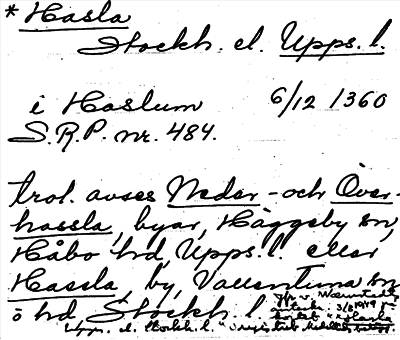 * Hasla
Stockh. el. Upps. l.
i Haslum 6/12 1360
S.R.P. nr. 484.
trol. avses Nedar- och Över-
hassla, byar, Häggeby sn,
Håbo hd, Upps. l. eller
Hassla, by, Vallentuna sn
o hd, Stockh. l.
Upps. el. Stockh. l."